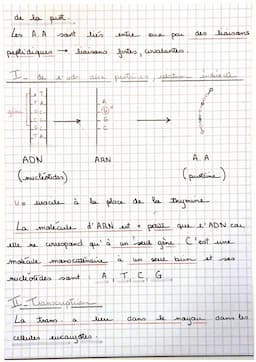 de la prot.
Les A.A sont liés entre eux par des liaisons
peptidiques → liaisons fortes, covalentes.
I - de l'ADN aux protéines, relation indirecte
gène
ADN
ARN
A.A
(nucléotides)
(protéine)
U = uracile à la place de la thymine
La molécule d'ARN est + petite que l'ADN car
elle ne correspond qu'à un seul gène C'est une
molécule monocaténaire à un seul brin et ses
nucléotides sont A T C G
II - Transcription
La trans a lieu dans le noyau dans les
cellules eucaryotes.